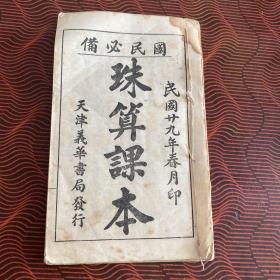 國民必備
民國廿九年春月印
珠算課本
天津義華書局發行